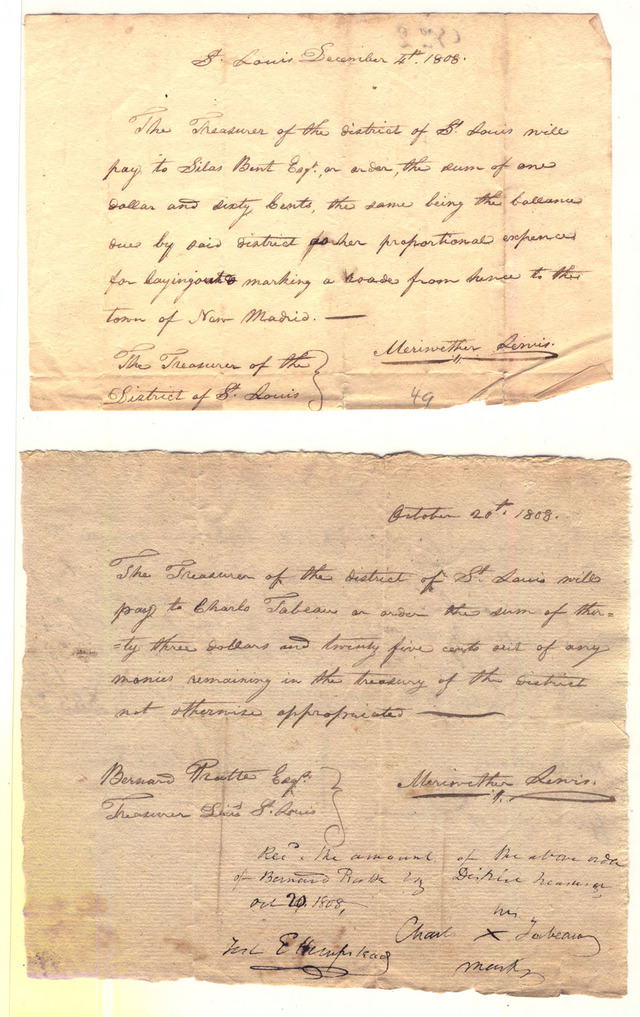 St. Louis December 4th. 1808.
The Treasurer of the district of St. Louis will
pay to Silas Bent Esqr. or order, the sum of one
dollar and sixty Cents, the same being the ballance
due by said district for her proportional expence
for laying out & marking a roade from hence to the
town of New Madrid. —
Meriwether Lewis.
The Treasurer of the
District of St. Louis
49
October 20th. 1808.
The Treasurer of the district of St. Louis will
pay to Charls Tabeau or order the sum of thir=
=ty three dollars and twenty five cents out of any
monies remaining in the treasury of the District
not otherwise appropriated —
Bernard Pratte Esqr.
Treasurer St. Louis
Meriwether Lewis.
Recd. the amount of the above order
of Bernard Pratte Esq District treasurer
Oct 20 1808,
his
Charls X Tabeau
mark
Test E Hempstead